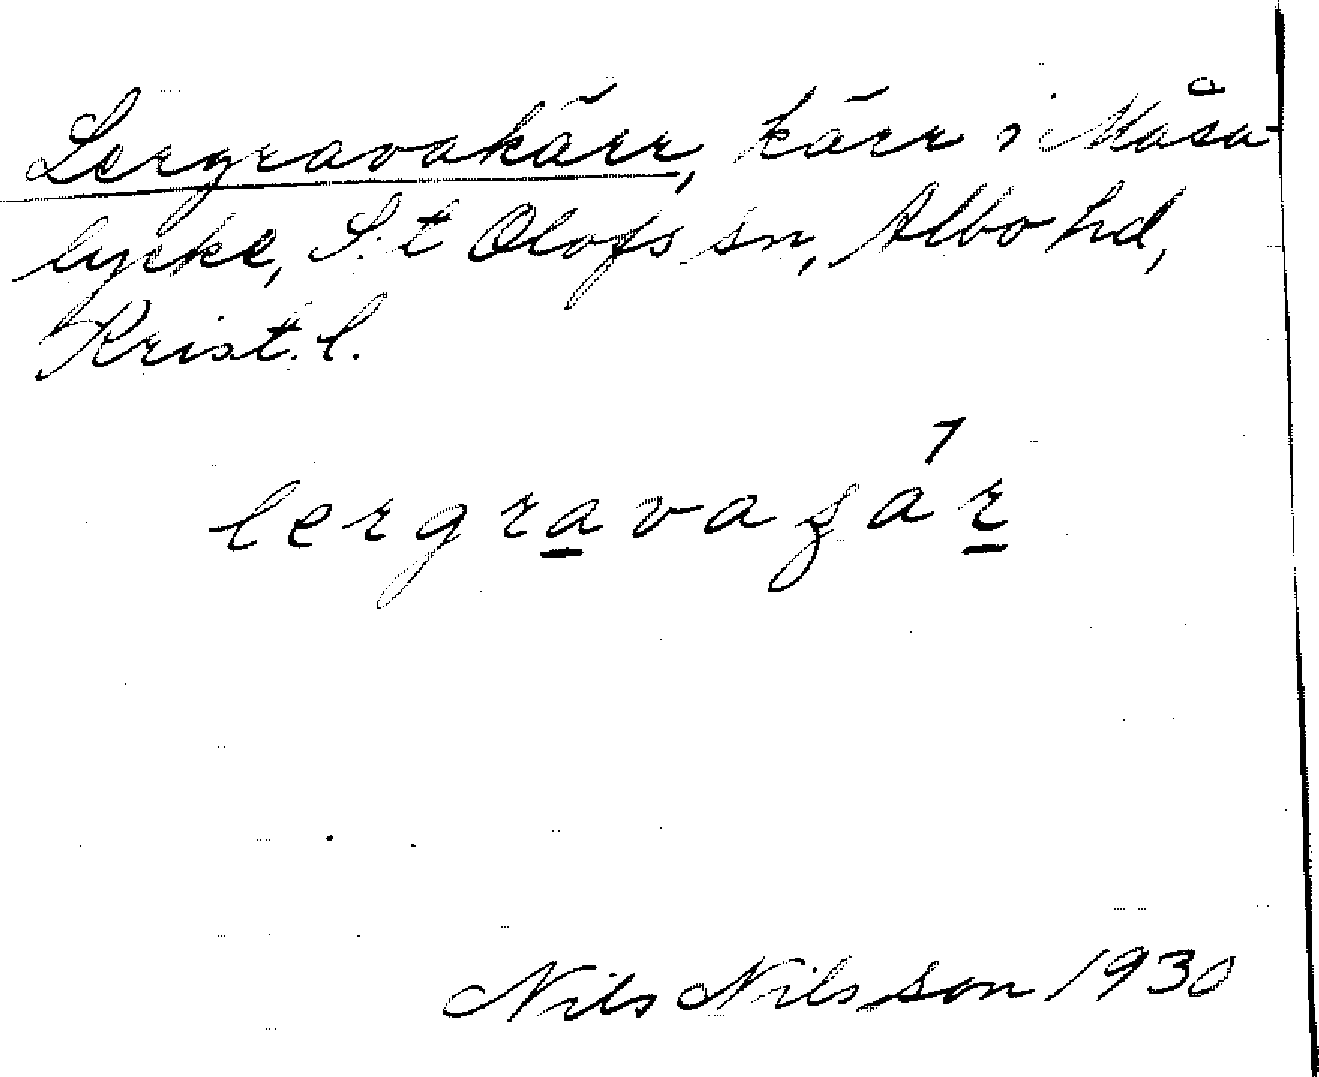 Lergravakärr, kärr i Måsa-
lycke, S:t Olofs sn, Albo hd,
Krist. l.
lergravaʂár
Nils Nilsson 1930